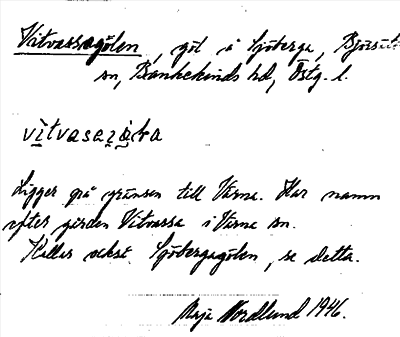 Vitvassagölen, göl å Sjöberga, Björsät
sn, Bankekinds hd, Östg. l.
vitvasa
Ligger på gränsen till Värna. Har namn
efter gården Vitvassa i Värna sn.
Kallas också Sjöbergagölen, se detta.
Maja Nordlund 1946.